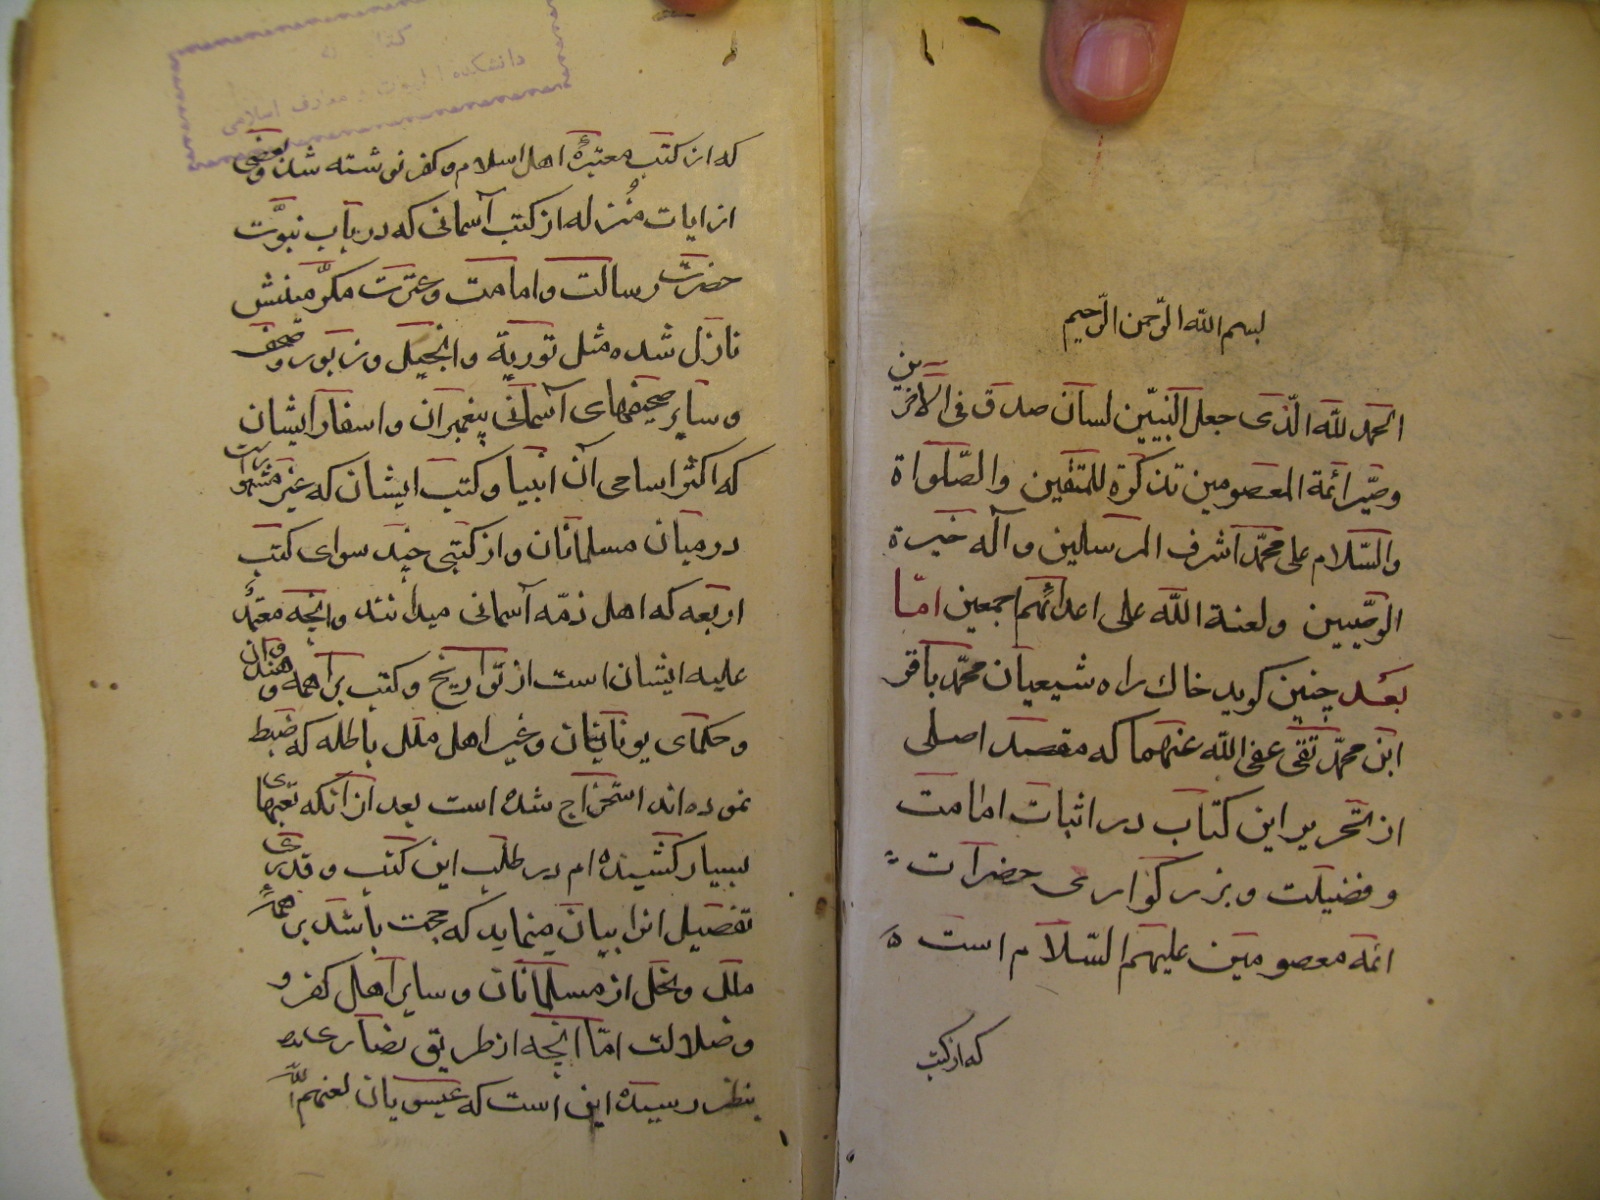 بسم الله الرّحمن الرّحیم
الحمد لله الّذی جعل النبیّین لسان صدق فی الآخرین
وصیّر ائمة المعصومین تذکرة للمتقین والصّلواة
والسّلام علی محمّد اشرف المرسلین وآله خیرة
الوصّیین ولعنة اللّه علی اعدائهم اجمعین امّا
بعد چنین کوید خاك راه شیعیان محمّد باقر
ابن محمّد تقی عفی اللّه عنهما که مقصد اصلی
از تحریر این کتاب در اثبات امامت
وفضیلت وبزرکواری حضرات
ائمه معصومین علیهم السّلام است
که از کتب
کتا
دانشکده الهیات و معارف اسلامی
که از کتب معتبرهٔ اهل اسلام و کفر نوشته شد وبعضی
از ایات مُنزله از کتب آسمانی که در باب نبوَّت
حضرت رسالت وامامت وعترت مکرَّمینش
نازل شده مثل توریة وانجیل وزبور وصحف
وسایر صحیفهای آسمانی پیغمبران واسفار ایشان
که اکثر اسامی آن انبیا وکتب ایشان که غیر مشهور است
در میان مسلمانان واز کتبی چند سوای کتب
اربعه که اهل ذمّه آسمانی میدانند وانچه معتمدٌ
علیه ایشان است از تواریخ وکتب براهمه وهندوان
وحکمای یونانیان وغیر اهل ملل باطله که ضبط
نموده اند استخراج شده است بعد از آنکه تعبهای
بسیار کشیده ام در طلب این کتب وقدری
تفصیل انرا بیان مینماید که حجت باشد بر همهٔ
ملل ونحل از مسلمانان وسایر اهل کفر و
وضلالت امّا انچه از طریق نصاری
بنظر رسیده این است که عیسویان لعنهم اللّه